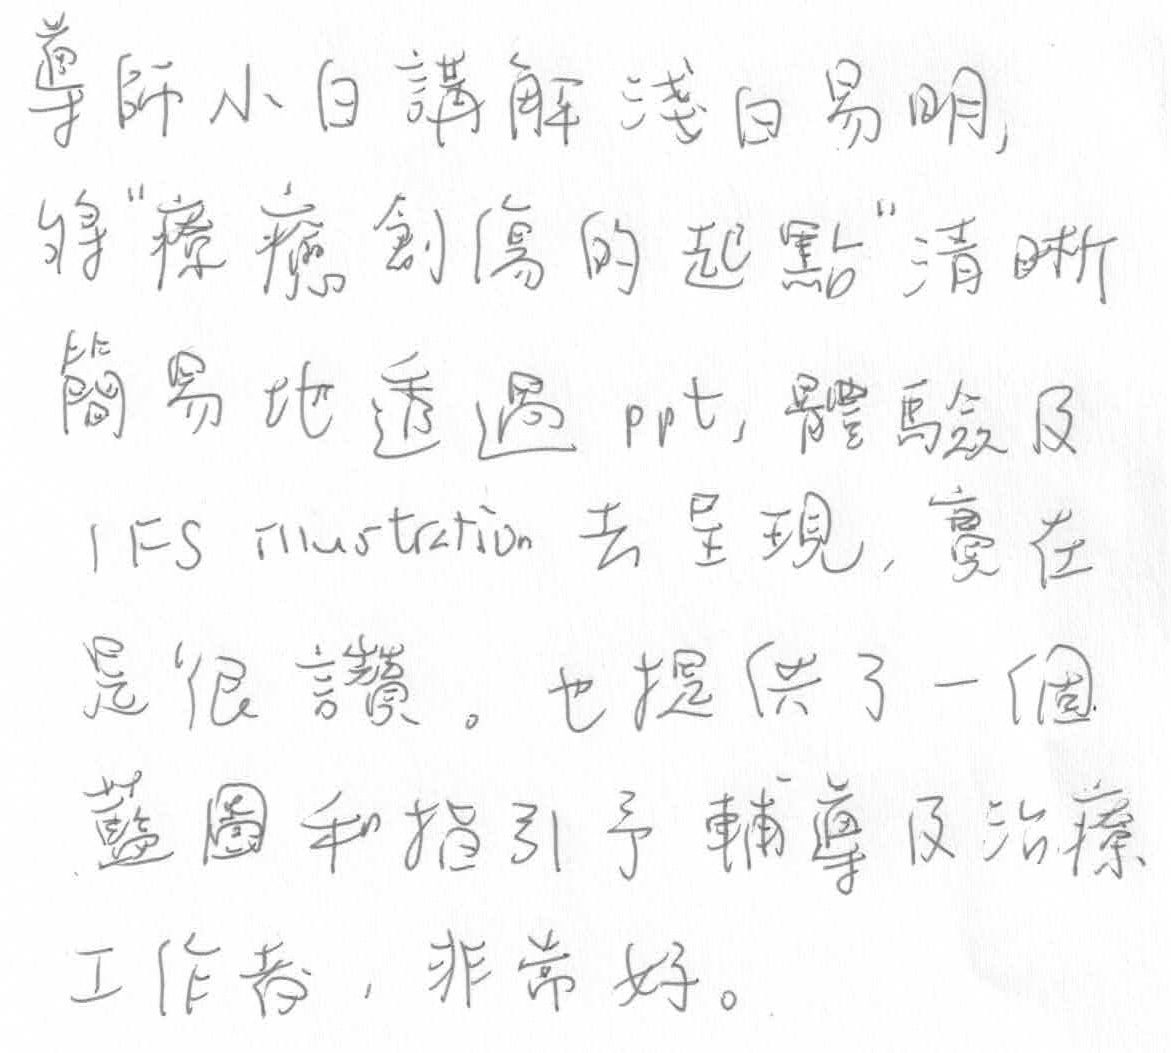 導師小白講解淺白易明,
將"療癒創傷的起點"清晰
簡易地透過ppt,體驗及
IFS illustration 去呈現,實在
是很讚。也提供了一個
藍圖和指引予輔導及治療
工作者,非常好。